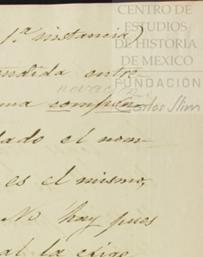 CENTRO DE
ESTUDIOS
DE HISTORIA
DE MEXICO
FUNDACIÓN
Carlos Slim
1ª instancia)
endida entre
ma
dado el nom-
es el mismo,
No hay pues
al la exige